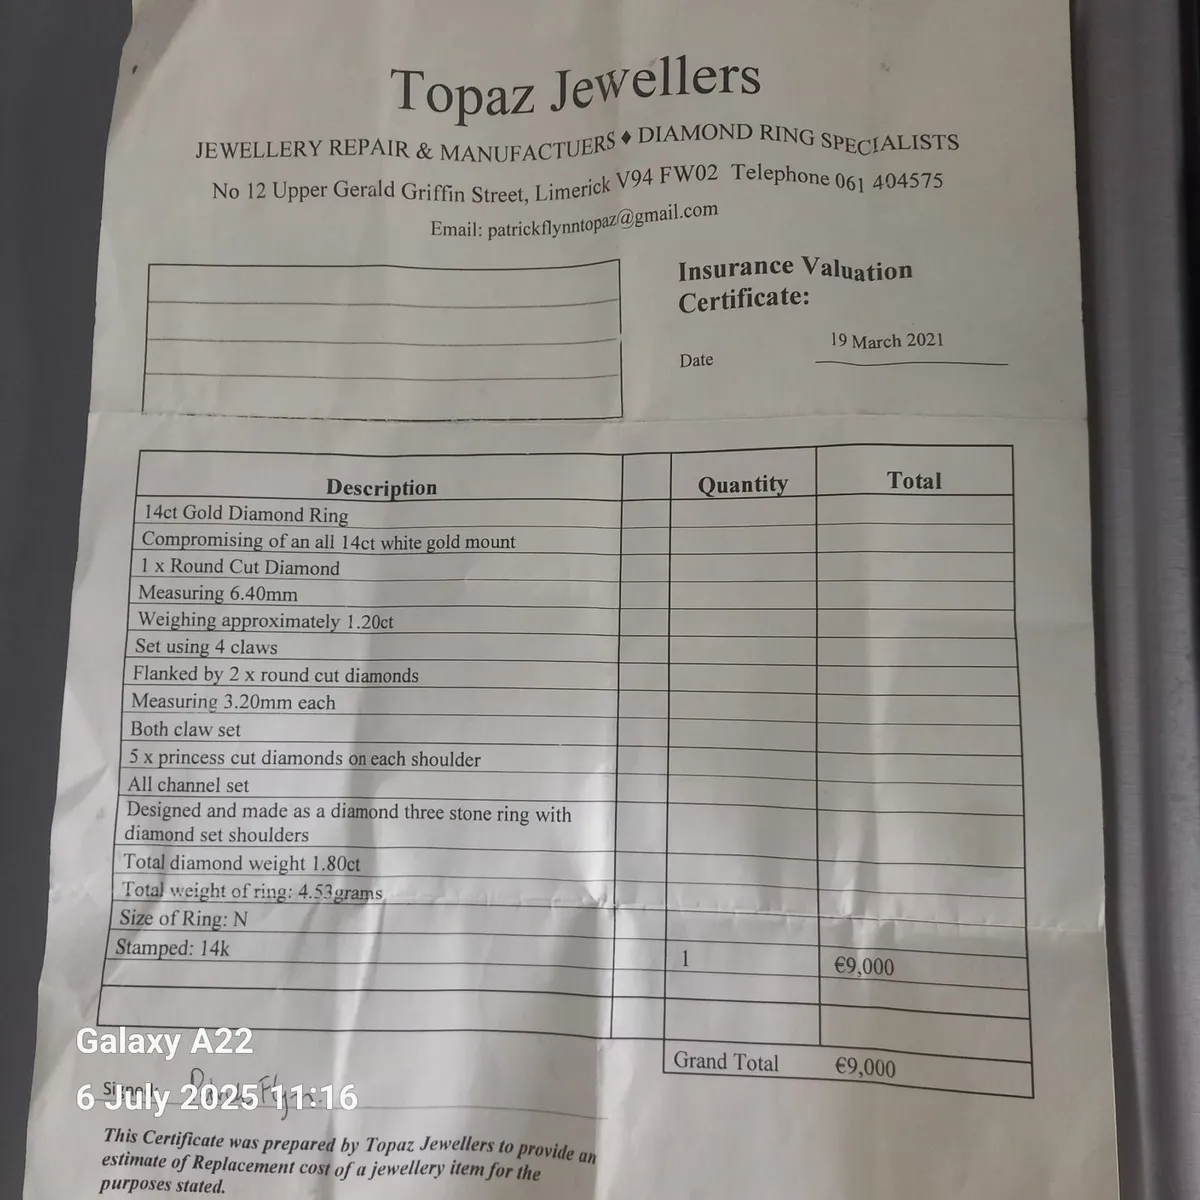 Topaz Jewellers
JEWELLERY REPAIR & MANUFACTUERS ♦ DIAMOND RING SPECIALISTS
No 12 Upper Gerald Griffin Street, Limerick V94 FW02 Telephone 061 404575
Email: patrickflynntopaz@gmail.com
Insurance Valuation
Certificate:
Date 19 March 2021
Description Quantity Total
14ct Gold Diamond Ring
Compromising of an all 14ct white gold mount
1 x Round Cut Diamond
Measuring 6.40mm
Weighing approximately 1.20ct
Set using 4 claws
Flanked by 2 x round cut diamonds
Measuring 3.20mm each
Both claw set
5 x princess cut diamonds on each shoulder
All channel set
Designed and made as a diamond three stone ring with
diamond set shoulders
Total diamond weight 1.80ct
Total weight of ring: 4.53grams
Size of Ring: N
Stamped: 14k 1 €9,000
Grand Total €9,000
Galaxy A22
Signed:
6 July 2025 11:16
This Certificate was prepared by Topaz Jewellers to provide an
estimate of Replacement cost of a jewellery item for the
purposes stated.